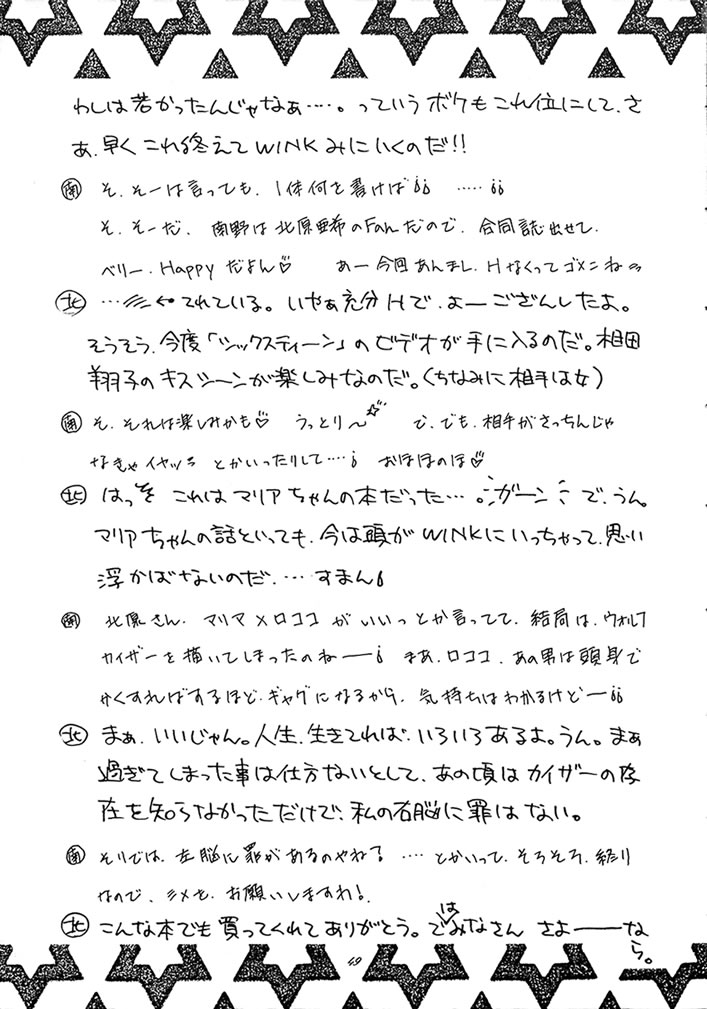 わしは若かったんじゃなぁ‥‥。っていうボケもこれ位にして、さ
あ、早くこれ終えてWINKみにいくのだ!!
南 そ、そーは言っても、1体何を書けば¡¡ ‥‥‥¡¡
そ、そーだ、南野は北原亜希のFanだので、合同誌出せて、
ベリー・Happyだよん♡ あー今回あんまし、Hなくってゴメンね
北 ‥‥ ←てれている。いやぁ充分Hで、よーござんしたよ。
そうそう、今度「シックスティーン」のビデオが手に入るのだ。相田
翔子のキスシーンが楽しみなのだ。(ちなみに相手は女)
南 そ、それは楽しみかも♡ うっとり〜☆ で、でも、相手がさっちんじゃ
なきゃイヤッ とかいったりして‥‥¡ おほほのほ♡
北 はっ これはマリアちゃんの本だった‥‥。ガーン で、うん。
マリアちゃんの話といっても、今は頭がWINKにいっちゃって、思い
浮かばないのだ、‥‥すまん
南 北原さん、マリア×ロココがいいっとか言ってて、結局は、ウォルフ
カイザーを描いてしまったのねー¡ まあ、ロココ、あの男は頭身で
かくすればするほど、ギャグになるから、気持ちはわかるけどー¡¡
北 まぁ、いいじゃん。人生、生きてれば、いろいろあるよ。うん。まぁ
過ぎてしまった事は仕方ないとして、あの頃はカイザーの存
在を知らなかっただけで、私の右脳に罪はない。
南 そりでは、左脳に罪があるのやね? ‥‥とかいって、そろそろ、終り
なので、シメを、お願いしますわ!
北 こんな本でも買ってくれてありがとう。ではみなさん さよーーーな
ら。
49